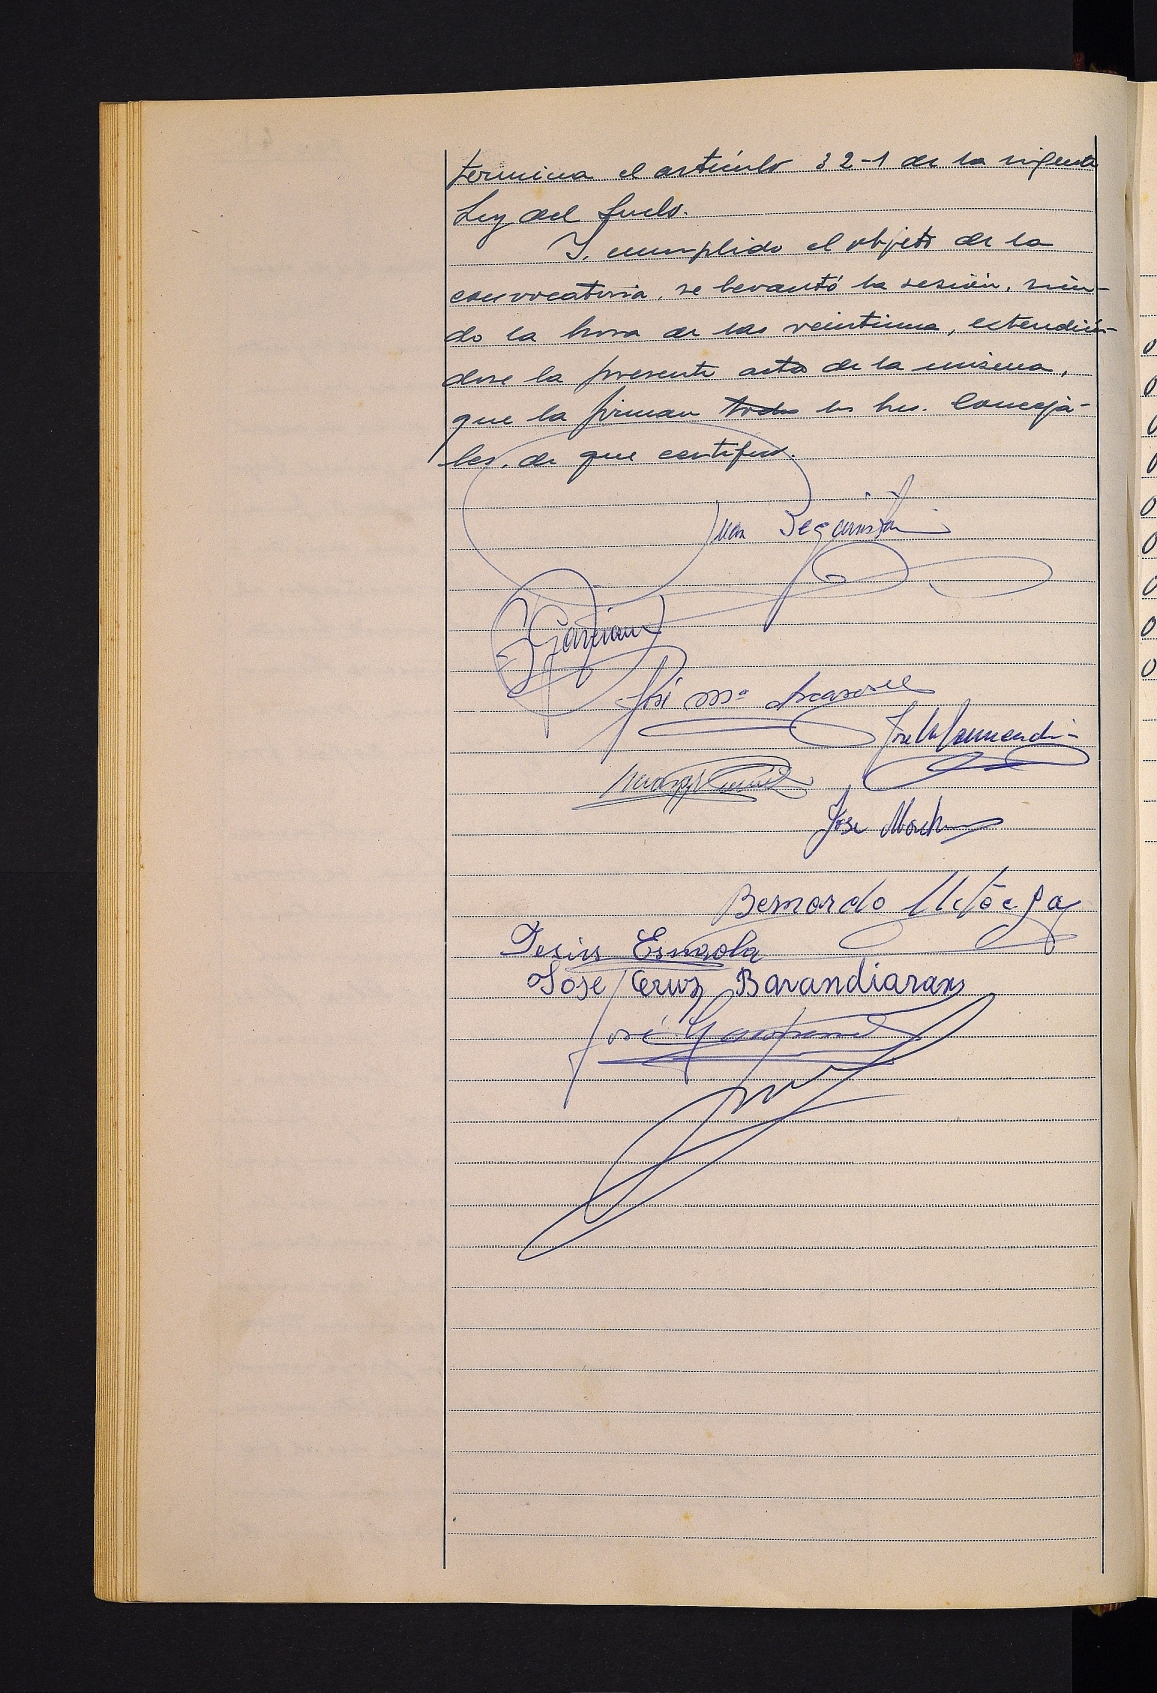 termina el artículo 32-1 de la vigente
Ley del Suelo.
Y, cumplido el objeto de la
convocatoria, se levantó la sesión, sien-
do la hora de las veintiuna, extendién-
dose la presente acta de la misma,
que la firman todos los Sres. Conceja-
les, de que certifico.
Juan Beguiristain
José Mª
José
Bernardo
Jesús Esnaola
José Cruz Barandiaran
José